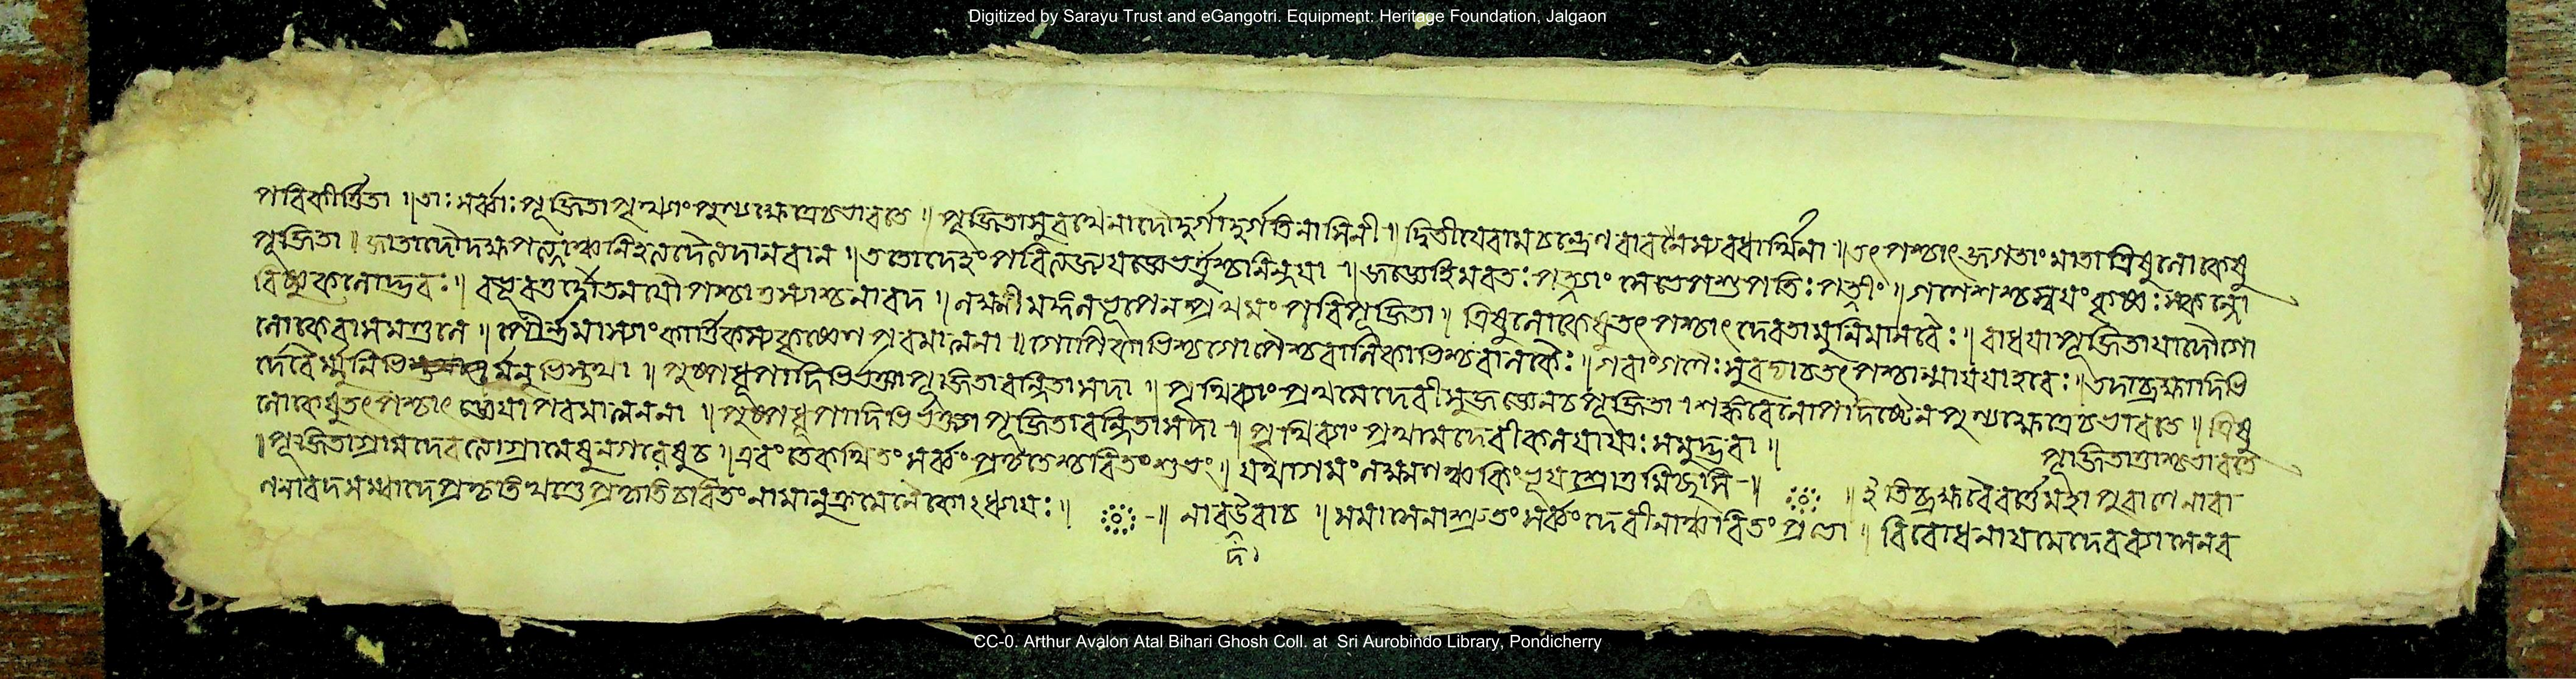 Digitized by Sarayu Trust and eGangotri. Equipment: Heritage Foundation, Jalgaon
পরিকীর্ত্তিতা ॥ তাঃ সর্ব্বাঃ পূজিতা পৃথ্ব্যাং পুণ্যক্ষেত্রে চ ভারতে ॥ পূজিতা সুরথেনাদৌ দুর্গা দুর্গতিনাসিনী ॥ দ্বিতীয়ে রামচন্দ্রেণ রাবণস্য বধার্থিনা ॥ তৎপশ্চাৎ জগতাং মাতা ত্রিষু লোকেষু
পূজিতা ॥ জাতাদৌ দক্ষপত্ন্যাঞ্চ নিহত্য দৈত্যদানবান ॥ ততো দেহং পরিত্যজ্য যজ্ঞে ভর্ত্তুশ্চ নিন্দয়া ॥ জজ্ঞে হিমবতঃ পত্ন্যাং লেভে পশুপতিং পতিং ॥ গণেশশ্চ স্বয়ং কৃষ্ণঃ স্কন্দো
বিষ্ণুকলোদ্ভবঃ ॥ বভূবতুস্তৌ তনয়ৌ পশ্চাত্তস্যাশ্চ নারদ ॥ লক্ষ্মী মঙ্গলভূপেন প্রথমং পরিপূজিতা ॥ ত্রিষু লোকেষু তৎপশ্চাৎ দেবতামুনিমানবৈঃ ॥ রাধয়া পূজিতা যাদৌ গো
লোকে রাসমণ্ডলে ॥ পৌর্ণমাস্যাং কার্ত্তিকস্য কৃষ্ণেন পরমাত্মনা ॥ গোপিকাভিশ্চ গোপৈশ্চ বালিকাভিশ্চ বালকৈঃ ॥ গবাং গণৈঃ সুরভ্যা চ তৎপশ্চান্মায়য়া হরেঃ ॥ তদা ব্রহ্মাদিভি
র্দেবৈর্ম্মুনিভির্মনুভিস্তথা ॥ পুষ্পধূপাদিভির্ভক্ত্যা পূজিতা বন্দিতা সদা ॥ পৃথিব্যাং প্রথমে দেবী সুযজ্ঞেন চ পূজিতা । শঙ্করেণোপদিষ্টেন পুণ্যক্ষেত্রে চ ভারতে ॥ ত্রিষু
লোকেষু তৎপশ্চাৎ পরমাত্মনা ॥ পুষ্পধূপাদিভির্ভক্ত্যা পূজিতা বন্দিতা সদা ॥ পৃথিব্যাং প্রথমে দেবী কলয়া যাঃ সমুদ্ভবা ॥ পূজিতাস্তাশ্চ ভারতে
॥ পূজিতা গ্রামদেব্যো গ্রামেষু নগরেষু চ ॥ এবং তে কথিতং সর্ব্বং প্রকৃতেশ্চরিতং শুভং ॥ যথাগমং লক্ষ্মণঞ্চ কিং ভূয় শ্রোতুমিচ্ছসি ॥ ॥ ইতি ব্রহ্মবৈবর্ত্তে মহাপুরাণে নারা
ণনারদসম্বাদে প্রকৃতিখণ্ডে প্রকৃতিচরিতং নামানুক্রমেনৈকোঽধ্যায়ঃ ॥ ॥ নারউবাচ ॥ সমাসেনাশ্রুতং সর্ব্বং দেবীনাঞ্চরিতং প্রভো ॥ বিবোধনায় মে দেব ব্যাসেন ব
দ।
CC-0. Arthur Avalon Atal Bihari Ghosh Coll. at Sri Aurobindo Library, Pondicherry